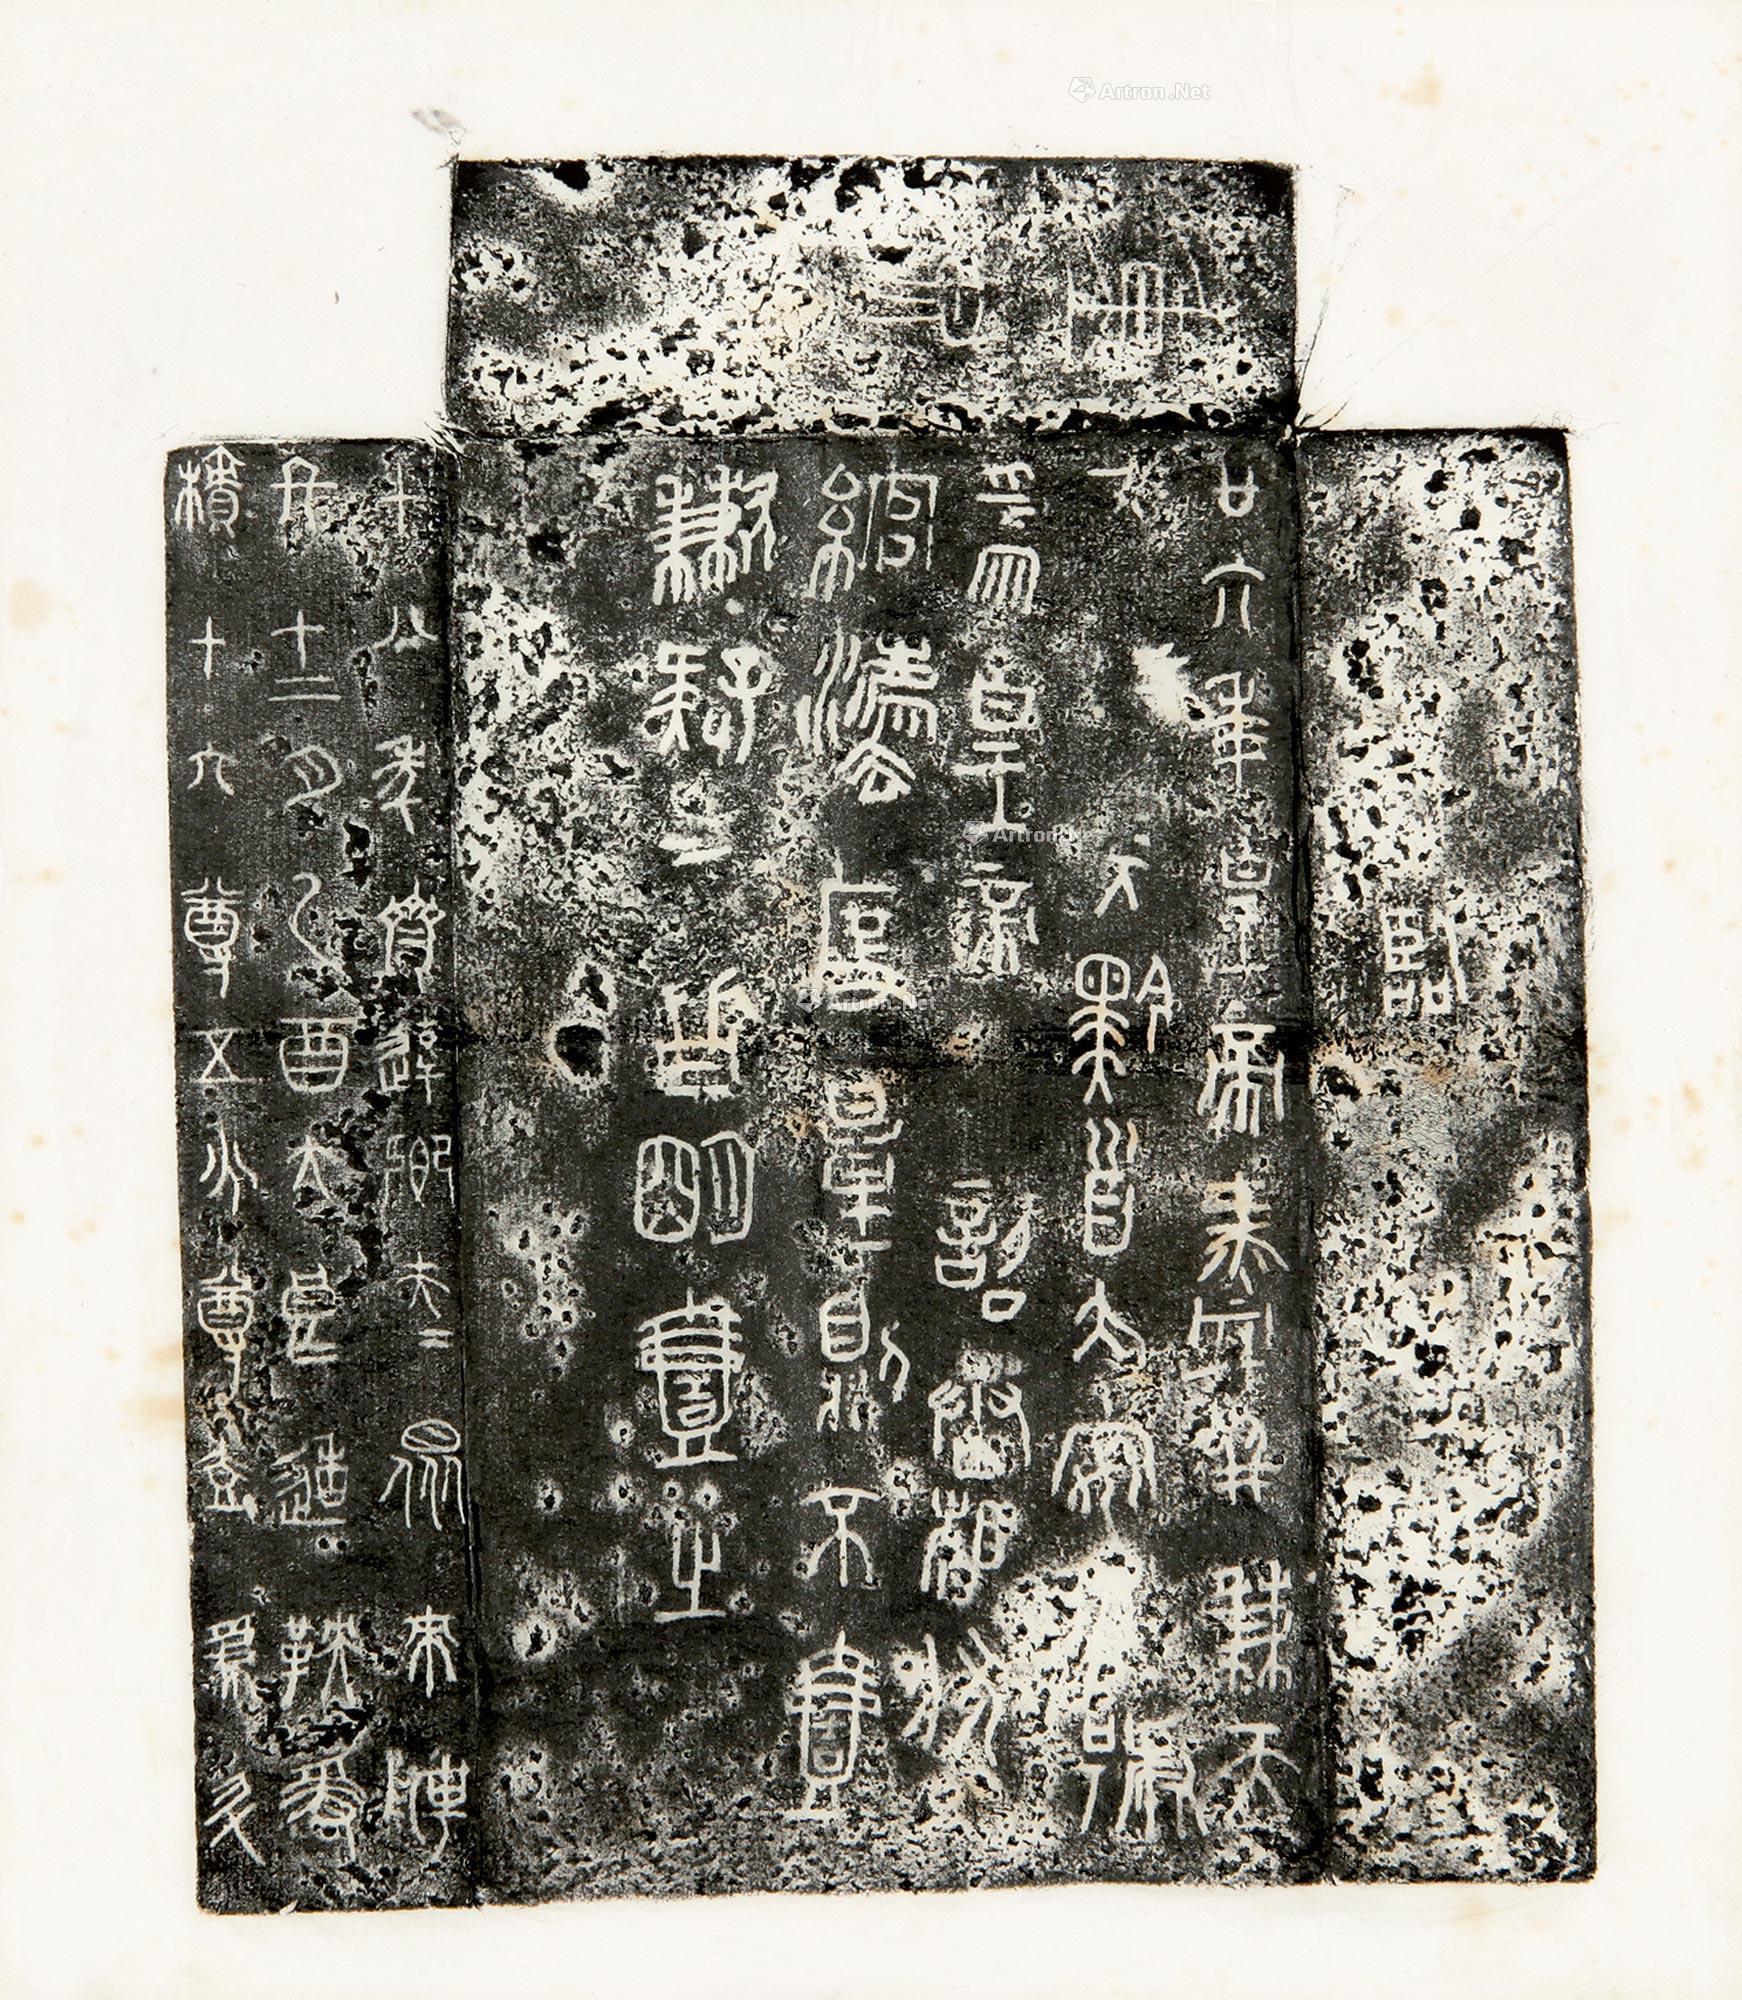 重泉
臨
廿六年皇帝盡并兼天
下諸侯黔首大安立號
為皇帝乃詔丞相狀
綰法度量則不壹
歉疑者皆明壹之
十八年齊遣卿大夫眾來聘
冬十二月乙酉大良造鞅爰
積十六尊五分尊壹為升
Artron.Net
Artron.Net
Artron.Net